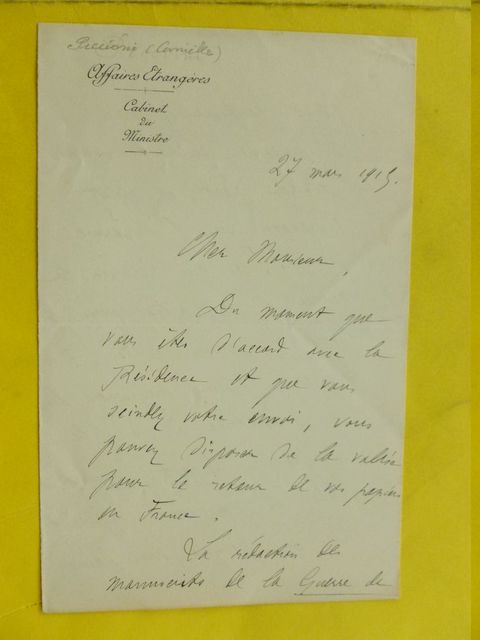 Piccioni (Camille)
Affaires Etrangères
Cabinet
du
Ministre
27 mars 1915.
Cher Monsieur,
Du moment que
vous êtes d'accord avec la
Résidence et que vous
scindez votre envoi, vous
pouvez disposer de la valise
pour le retour de vos papiers
en France.
La rédaction des
manuscrits de la Guerre de